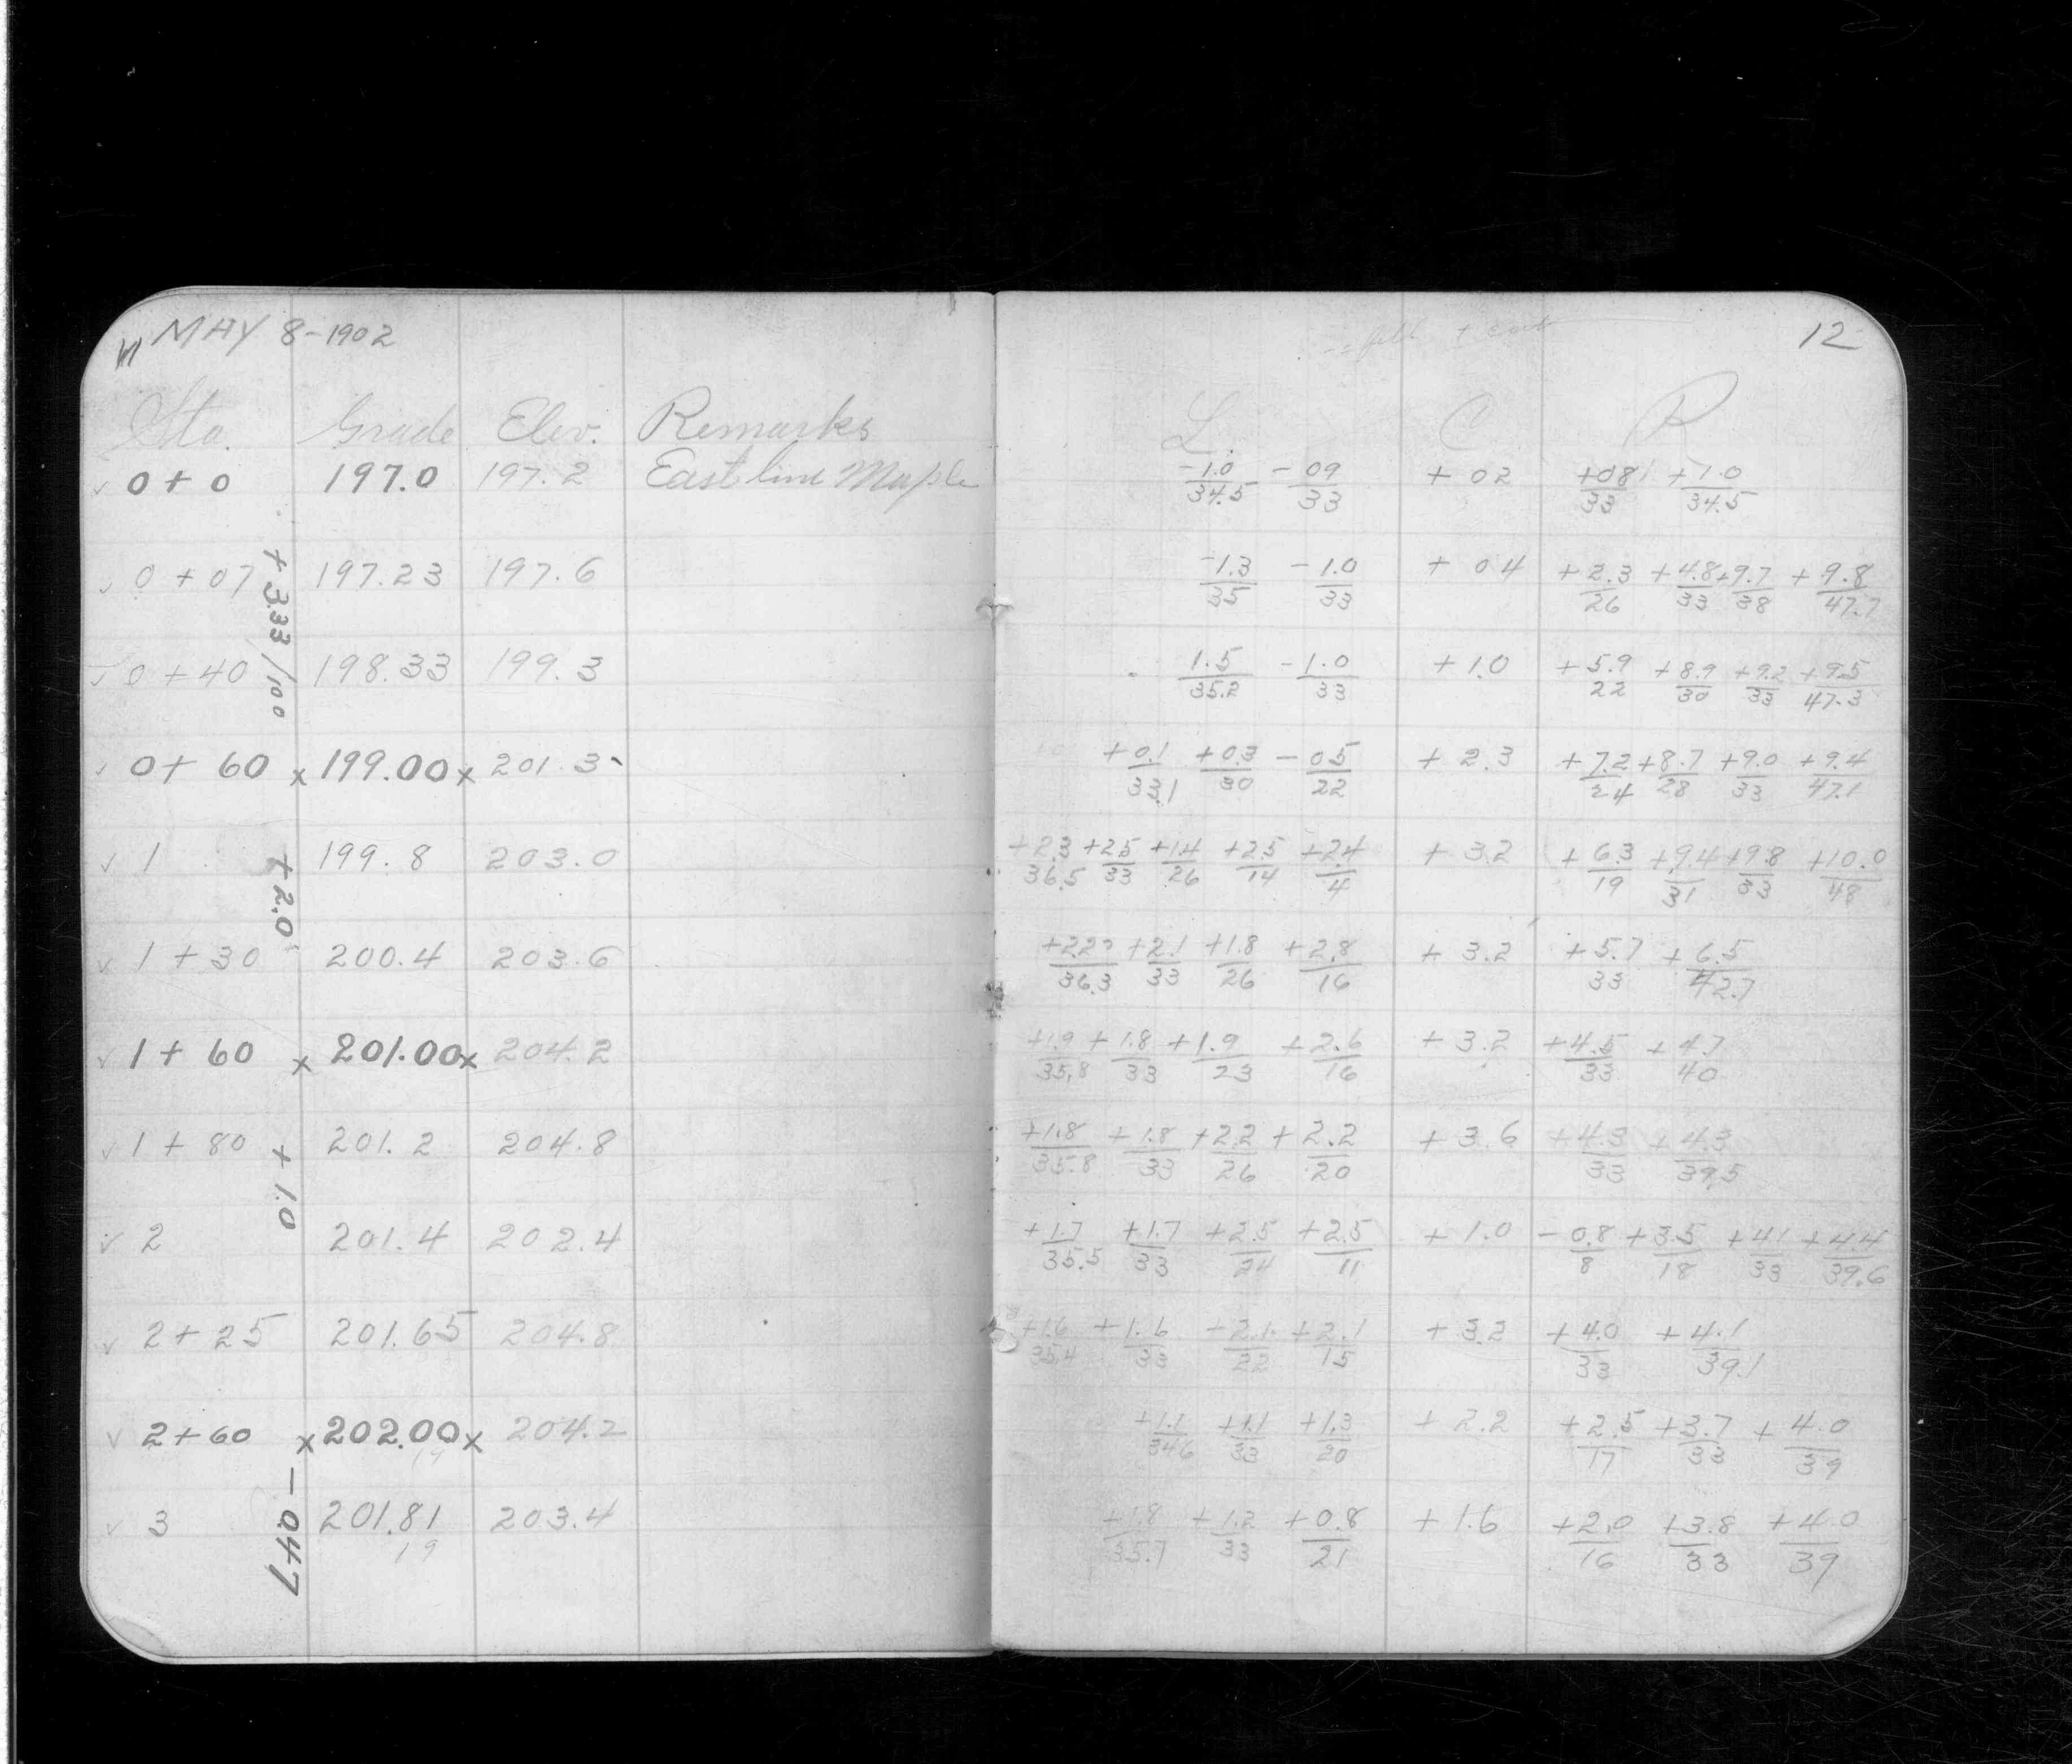 MAY 8-1902
Sta. Grade Elev. Remarks
0+0 197.0 197.2 East line Maple
0+07 197.23 197.6
+3.33/100
0+40 198.33 199.3
0+60 x 199.00 x 201.3
1 199.8 203.0
+2.0
1+30 200.4 203.6
1+60 x 201.00 x 204.2
1+80 201.2 204.8
+1.0
2 201.4 202.4
2+25 201.65 204.8
2+60 x 202.00 x 204.2
19
3 201.81 203.4
19
-0.47
-= fill + cut 12
L. C R
-1.0/34.5 -09/33 +02 +08/33 +1.0/34.5
-1.3/35 -1.0/33 +04 +2.3/26 +4.8/33 +9.7/38 +9.8/47.7
1.5/35.2 -1.0/33 +1.0 +5.9/22 +8.9/30 +9.2/33 +9.5/47.3
+0.1/33.1 +0.3/30 -05/22 +2.3 +7.2/24 +8.7/28 +9.0/33 +9.4/47.1
+2.3/36.5 +2.5/33 +1.4/26 +2.5/14 +2.4/4 +3.2 +6.3/19 +9.4/31 +9.8/33 +10.0/48
+2.2/36.3 +2.1/33 +1.8/26 +2.8/16 +3.2 +5.7/33 +6.5/42.7
+1.9/35.8 +1.8/33 +1.9/23 +2.6/16 +3.2 +4.5/33 +4.7/40
+1.8/35.8 +1.8/33 +2.2/26 +2.2/20 +3.6 +4.3/33 +4.3/39.5
+1.7/35.5 +1.7/33 +2.5/24 +2.5/11 +1.0 -0.8/8 +3.5/18 +4.1/33 +4.4/39.6
+1.6/35.4 +1.6/33 +2.1/22 +2.1/15 +3.2 +4.0/33 +4.1/39.1
+1.1/34.6 +1.1/33 +1.3/20 +2.2 +2.5/17 +3.7/33 +4.0/39
+1.8/35.7 +1.2/33 +0.8/21 +1.6 +2.0/16 +3.8/33 +4.0/39